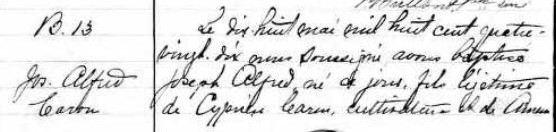 B. 13
Jos. Alfred
Caron
Le dix huit mai mil huit cent quatre-
vingt-dix nous soussigné, avons baptisé
Joseph Alfred, né ce jour, fils légitime
de Cyprien Caron, cultivateur et de